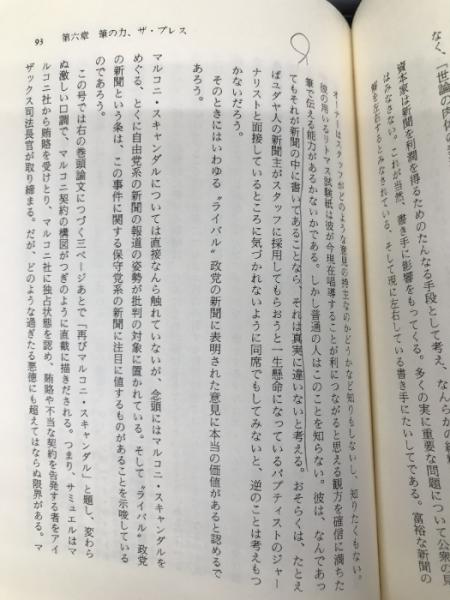 なく、「世論の肉体の
資本家は新聞を利潤を得るためのたんなる手段として考え、
はみなさない。これが当然、書き手に影響をもってくる。多くの実に重要な問題について公衆の見
解を左右するとみなされている、そして現に左右している書き手にたいしてである。富裕な新聞の
オーナーはスタッフがどのような意見の持主なのかどうかなど知りもしないし、知りたくもない。
彼の用いるリトマス試験紙は彼が今現在唱導することが利につながると思える観方を確信に満ちた
筆で伝える能力があるかないかである。しかし普通の人はこのことを知らない。彼は、なんであっ
てもそれが新聞の中に書いてあることなら、それは真実に違いないと考える。おそらくは、たとえ
ばユダヤ人の新聞主がスタッフに採用してもらおうと一生懸命になっているバプティストのジャー
ナリストと面接しているところに気づかれないように同席でもしてみないと、逆のことは考えもつ
かないだろう。
そのときにはいわゆる〝ライバル〟政党の新聞に表明された意見に本当の価値があると認めるで
あろう。
マルコニ・スキャンダルについては直接なんら触れていないが、念頭にはマルコニ・スキャンダルを
めぐる、とくに自由党系の新聞の報道の姿勢が批判の対象に置かれている。そして〝ライバル〟政党
の新聞という条は、この事件に関する保守党系の新聞に注目に値するものがあることを示唆している
のであろう。
この号では右の巻頭論文につづく三ページあとで「再びマルコニ・スキャンダル」と題し、変わら
ぬ激しい口調で、マルコニ契約の構図がつぎのように直截に描きだされる。つまり、サミュエルはマ
ルコニ社から賄賂を受けとり、マルコニ社に独占状態を認め、賄賂や不当な契約を告発する者をアイ
ザックス司法長官が取り締まる。だが、どのような過ぎたる悪徳にも超えてはならぬ限界がある。マ
93 第六章 筆の力、ザ・プレス